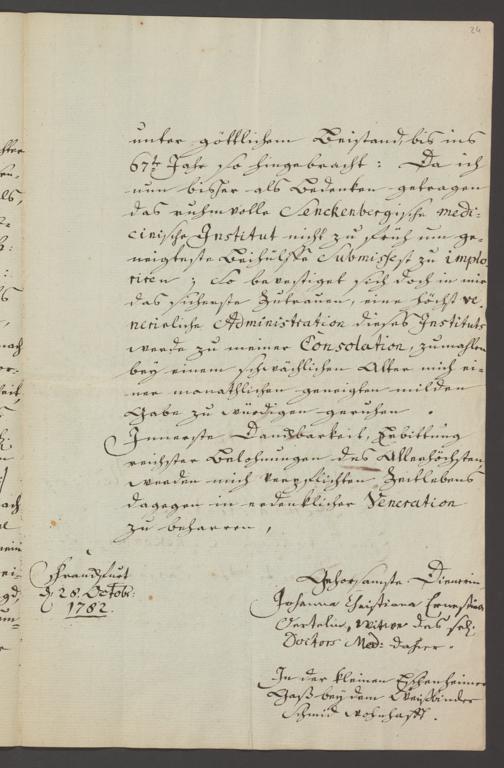 24
unter göttlichem Beistand, bis ins
67te Jahr so hingebracht: Da ich
nun bisher als Bedenken getragen
das ruhmvolle Senckenbergische medi-
cinische Institut nicht zu früh um ge-
neigteste Beihülffe submissest zu implo-
riren; So bevestiget sich doch in mir
das sicherste Zutrauen, eine höchst ve-
nerirliche Administration dieses Instituts
werde zu meiner Consolation, zumahlen
bey einem schwächlichen Alter mich ei-
ner monathlichen geneigten milden
Gabe zu würdigen geruhen.
Innerste Danckbarkeit, Erbittung
reichster Belohnungen des Allerhöchsten,
werden mich verpflichten Zeitlebens
dagegen in erdencklicher Veneration
zu beharren,
Franckfurt
d. 28. Octobr:
1782.
Gehorsamste Dienerin
Johanna Christiana Ernestina
Oertelin, Witwe des sel.
Doctors Med: dahier.
In der kleinen Eschenheimer
Gaß bey dem Weißbinder
Schmid wohnhafft.